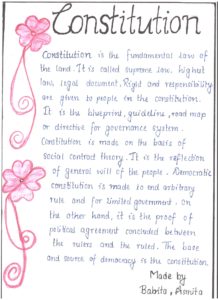 Constitution
Constitution is the fundamental law of
the land. It is called supreme law, highest
law, legal document. Right and responsibility
are given to people in the constitution.
It is the blueprint, guideline, road map
or directive for governance system.
Constitution is made on the basis of
social contract theory. It is the reflection
of general will of the people. Democratic
constitution is made to end arbitrary
rule and for limited government. On
the other hand, it is the proof of
political agreement concluded between
the rulers and the ruled. The base
and source of democracy is the constitution.
Made by
Babita, Asmita